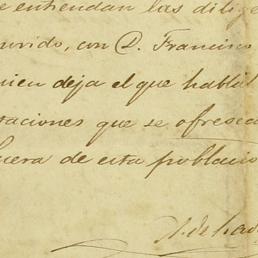 e entiendan las dilige
urrido, con D. Francisco
uien deja el que habla
taciones que se ofresca
fuera de esta poblacio